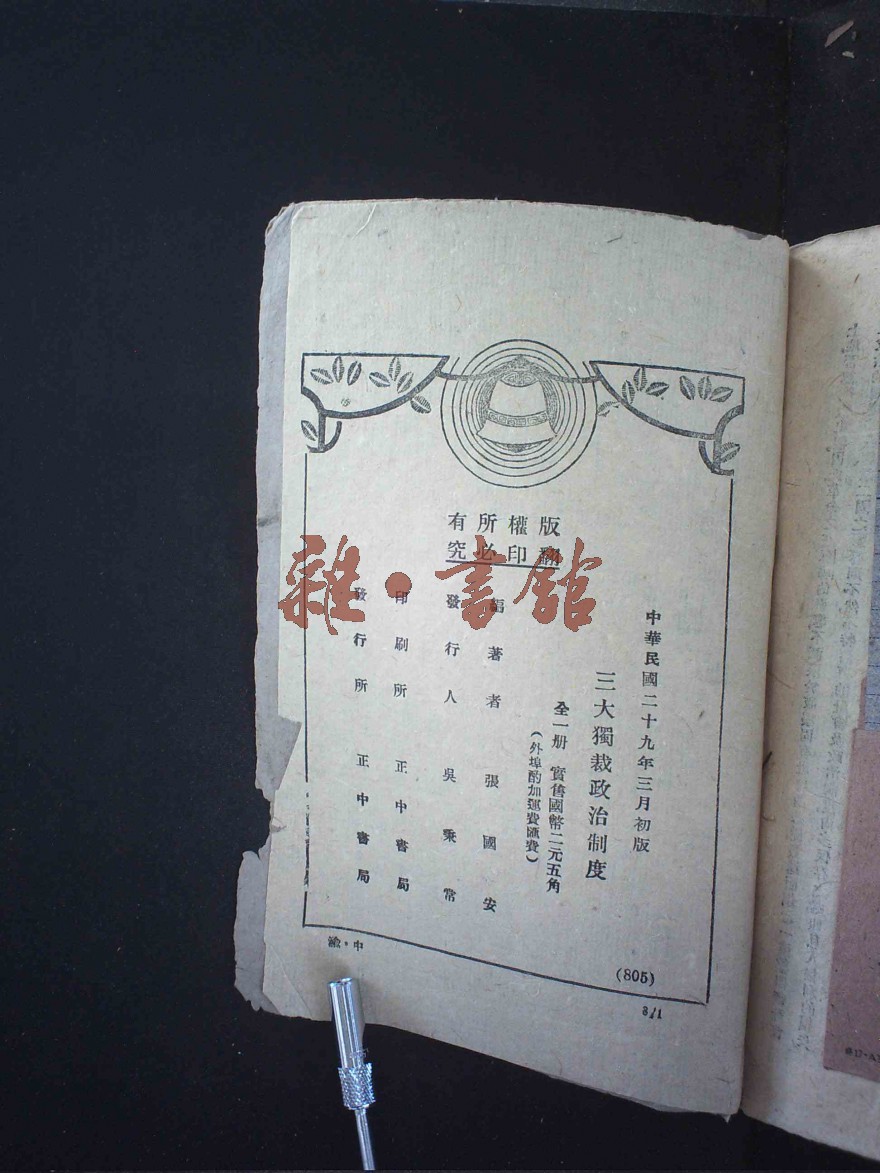 版權所有
翻印必究
中華民國二十九年三月初版
三大獨裁政治制度
全一册 實售國幣二元五角
(外埠酌加運費匯費)
編著者 張國安
發行人 吳秉常
印刷所 正中書局
發行所 正中書局
(805)
渝·中
雜·書館